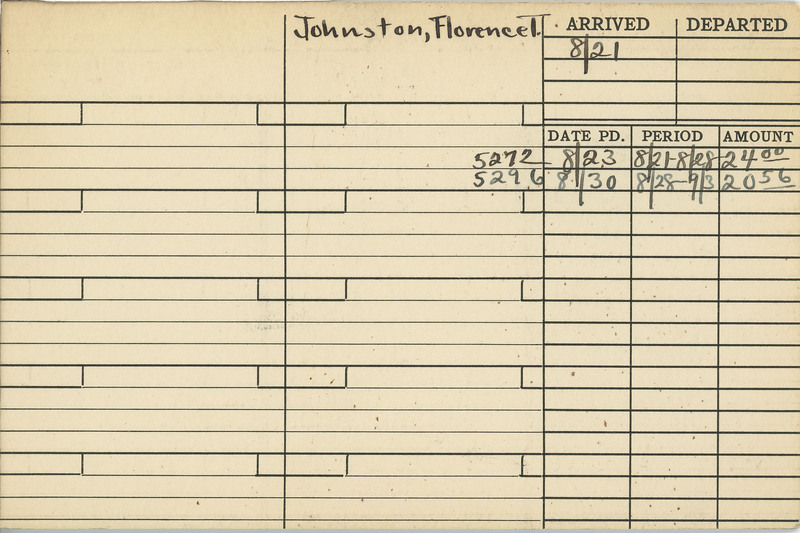 Johnston, Florence T. ARRIVED DEPARTED
8/21
DATE PD. PERIOD AMOUNT
5272 8/23 8/21-8/28 24 00
5296 8/30 8/28-9/3 20 56